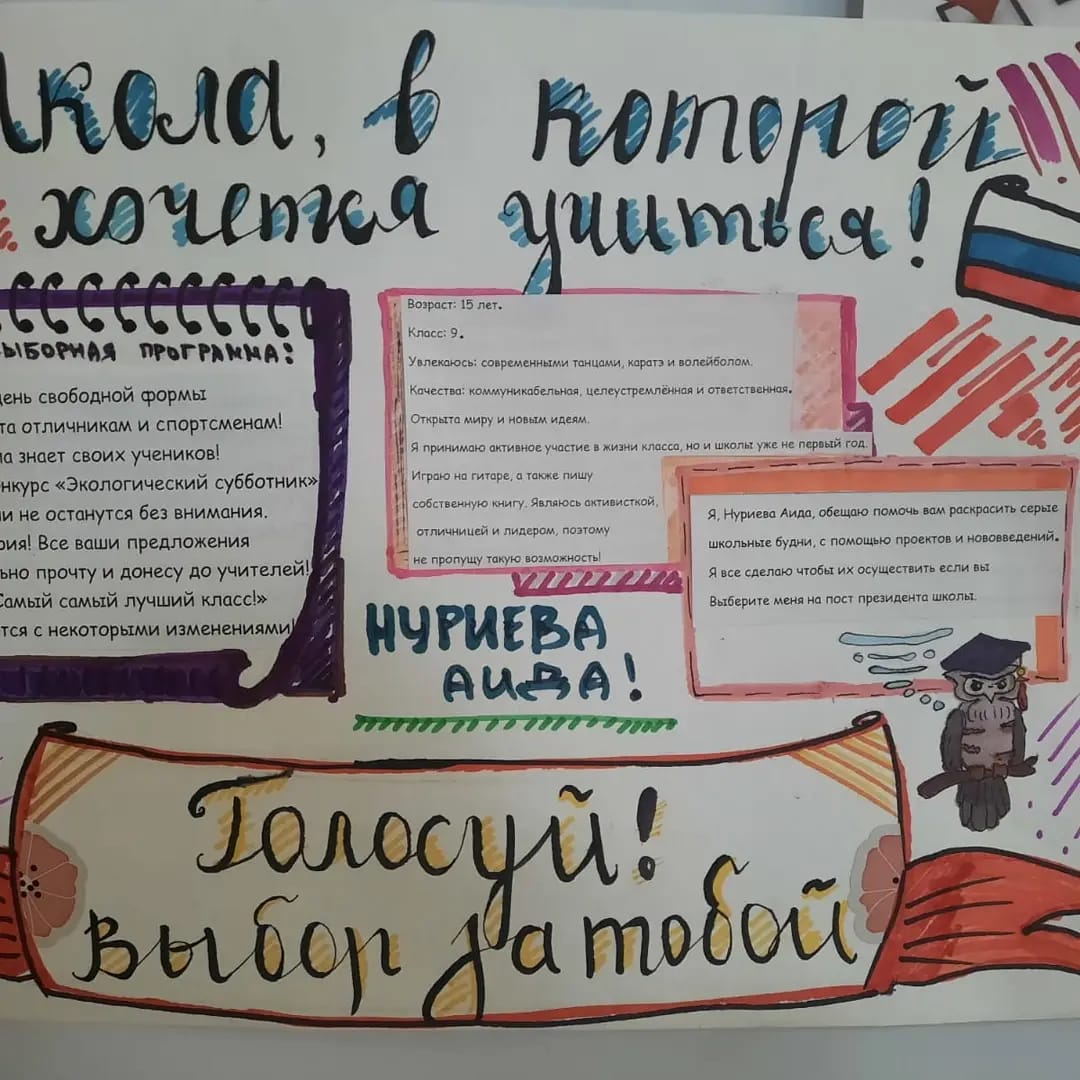 Школа, в которой
хочется учиться!
ВЫБОРНАЯ ПРОГРАММА:
день свободной формы
та отличникам и спортсменам!
ла знает своих учеников!
нкурс «Экологический субботник»
ии не останутся без внимания.
рия! Все ваши предложения
ьно прочту и донесу до учителей!
Самый самый лучший класс!»
тся с некоторыми изменениями!
Возраст: 15 лет.
Класс: 9.
Увлекаюсь: современными танцами, каратэ и волейболом.
Качества: коммуникабельная, целеустремлённая и ответственная.
Открыта миру и новым идеям.
Я принимаю активное участие в жизни класса, но и школы уже не первый год.
Играю на гитаре, а также пишу
собственную книгу. Являюсь активисткой,
отличницей и лидером, поэтому
не пропущу такую возможность!
Я, Нуриева Аида, обещаю помочь вам раскрасить серые
школьные будни, с помощью проектов и нововведений.
Я все сделаю чтобы их осуществить если вы
Выберите меня на пост президента школы.
НУРИЕВА
АИДА!
Голосуй!
Выбор за тобой